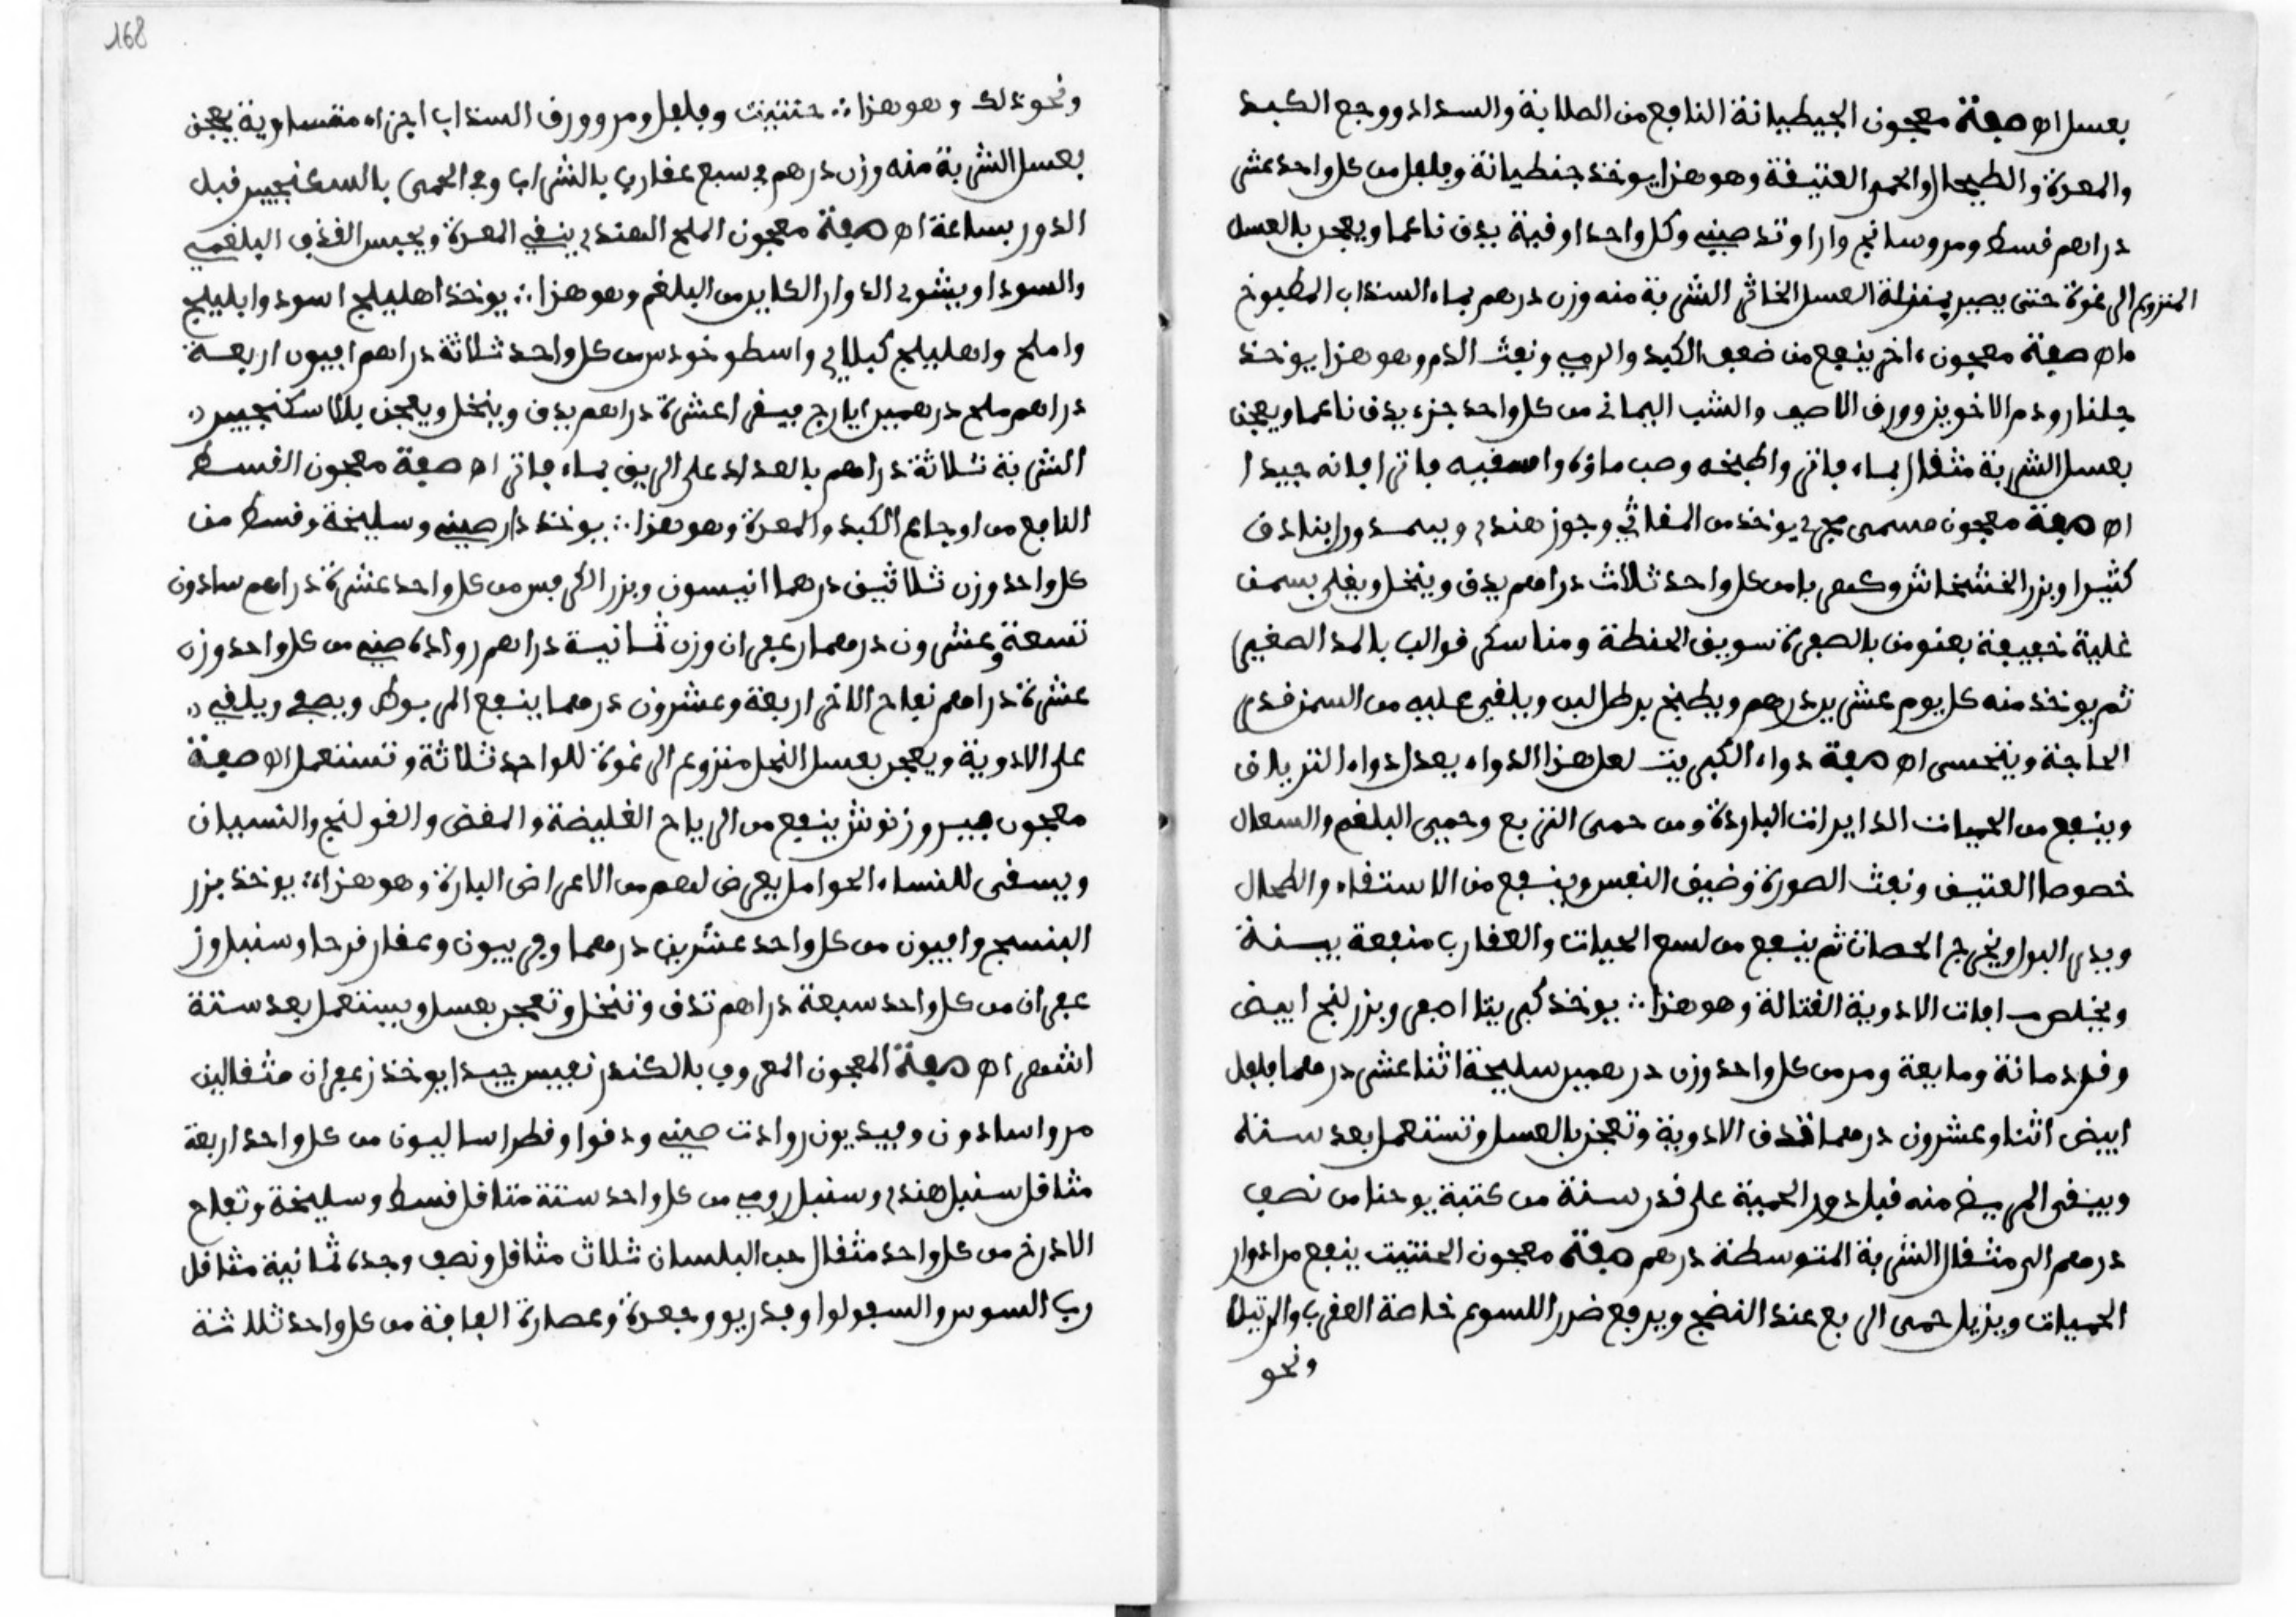 بعسل اه صفة معجون الجيطيانة النافع من الصلابة والسداد ووجع الكبد
والمعدة والطيحال والحمى العتيقة وهو هذا يوخذ جنطيانة وفلفل من كل واحد عشر
دراهم قسط ومر وسانج واراوند صيني وكل واحد اوقية يدق ناعما ويعجن بالعسل
المنزوع الرغوة حتى يصير بمنزلة العسل الخاثر الشربة منه وزن درهم بماء السنداب المطبوخ
ماه صفة معجون ءاخر ينفع من ضعف الكبد والرمي ونفث الدم وهو هذا يوخذ
جلنار ودم الاخوين وورق الاصف والشب اليماني من كل واحد جزء يدق ناعما ويعجن
بعسل الشربة مثقال بماء فاتر واطبخه وصب ماؤه واسقيه فاترا فانه جيدا
اه صفة معجون مسمى يوخذ من المقاثي وجوز هندي ويسمد ورا بنادق
كثيرا وبزر الخشخاش وكهربا من كل واحد ثلاث دراهم يدق وينخل ويغلى بسمن
غلية خفيفة بعنو من بالصفرة سويق الحنطة ومنا سكر قوالب بالمد الصغير
ثم يوخذ منه كل يوم عشرين درهم ويطبخ برطل لبن ويلقى عليه من السمن قدر
الحاجة ويتحسى اه صفة دواء الكبريت لعل هذا الدواء يعدل دواء الترياق
وينفع من الحميات الدايرات الباردة ومن حمى التربع وحمى البلغم والسعال
خصوصا العتيق ونفث الصورة وضيق النفس وينفع من الاستقاء والطحال
ويدر البول ويخرج الحصاة ثم ينفع من لسع الحيات والعقارب منفعة بينة
ويخلص من افات الادوية القتالة وهو هذا ∴ يوخذ كبريتا اصفر وبزر لنج ابيض
وقردمانة ومايعة ومر من كل واحد وزن درهمين سليخة اثنا عشر درهما فلفل
ابيض اثنا وعشرون درهما تدق الادوية وتعجن بالعسل وتستعمل بعد ستة
ويسقى المريض منه قبل دور الحمية على قدر سنة من كتبة يوحنا من نصف
درهم الى مثقال الشربة المتوسطة درهم صفة معجون الحنتيت ينفع من ادوار
الحميات ويزيل حمى الربع عند النضج ويرفع ضرر اللسوع خاصة العقرب والرتيلا
ونحو
168
ونحو ذلك وهو هذا ∴ حنتيت وفلفل ومر وورق السنداب اجزاء متساوية يعجن
بعسل الشربة منه وزن درهم في سبع عقارب بالشراب وفي الحمى بالسكنجبير قبل
الدور بساعة اه صفة معجون الملح الهندي ينقي المعدة ويحبس القذف البلغمي
والسودا ويشوي الدوار الكاين من البلغم وهو هذا ∴ يوخذ اهليلج اسود وابليلج
واملج واهليلج كبلاي واسطوخودس من كل واحد ثلاثة دراهم افيون اربعة
دراهم ملح درهمين ايارج فيقرا عشرة دراهم يدق وينخل ويعجن بالاسكنجبير
الشربة ثلاثة دراهم بالعداد على الريق بماء فاتر اه صفة معجون القسط
النافع من اوجاع الكبد والمعدة وهو هذا ∴ يوخذ دار صيني وسليخة وقسط من
كل واحد وزن ثلاثين درهما انيسون وبزر الكرفس من كل واحد عشرة دراهم سادون
تسعة وعشرون درهما زعفران وزن ثمانية دراهم رواده صيني من كل واحد وزن
عشرة دراهم تفاح الاذخر اربعة وعشرون درهما ينقع المربوط ويصفى ويلقى
على الادوية ويعجن بعسل النحل منزوع الرغوة للواحد ثلاثة وتستعمل اه صفة
معجون فيروزنوش ينفع من الرياح الغليضة والمغض والقولنج والنسيان
ويسقى للنساء الحوامل يعرض لهم من الاعراض الباردة وهو هذا ∴ يوخذ بزر
البنسج وافيون من كل واحد عشرين درهما وفربيون وعقار قرحا وسنبل وز
عفران من كل واحد سبعة دراهم تدق وتنخل وتعجن بعسل ويستعمل بعد ستة
اشهر اه صفة المعجون المعروف بالكندر نفيس جيدا يوخذ زعفران مثقالين
مر واسادون وفيديون روادت صيني ودقوا وقطراساليون من كل واحد اربعة
مثاقل سنبل هندي وسنبل رومي من كل واحد ستة مثاقل قسط وسليخة وتفاح
الاذرخ من كل واحد مثقال حب البلسان ثلاث مثاقل ونصف وجدة ثمانية مثاقل
رب السوس والسعولوا وفدريو وجعدة وعصارة الغافة من كل واحد ثللاثة